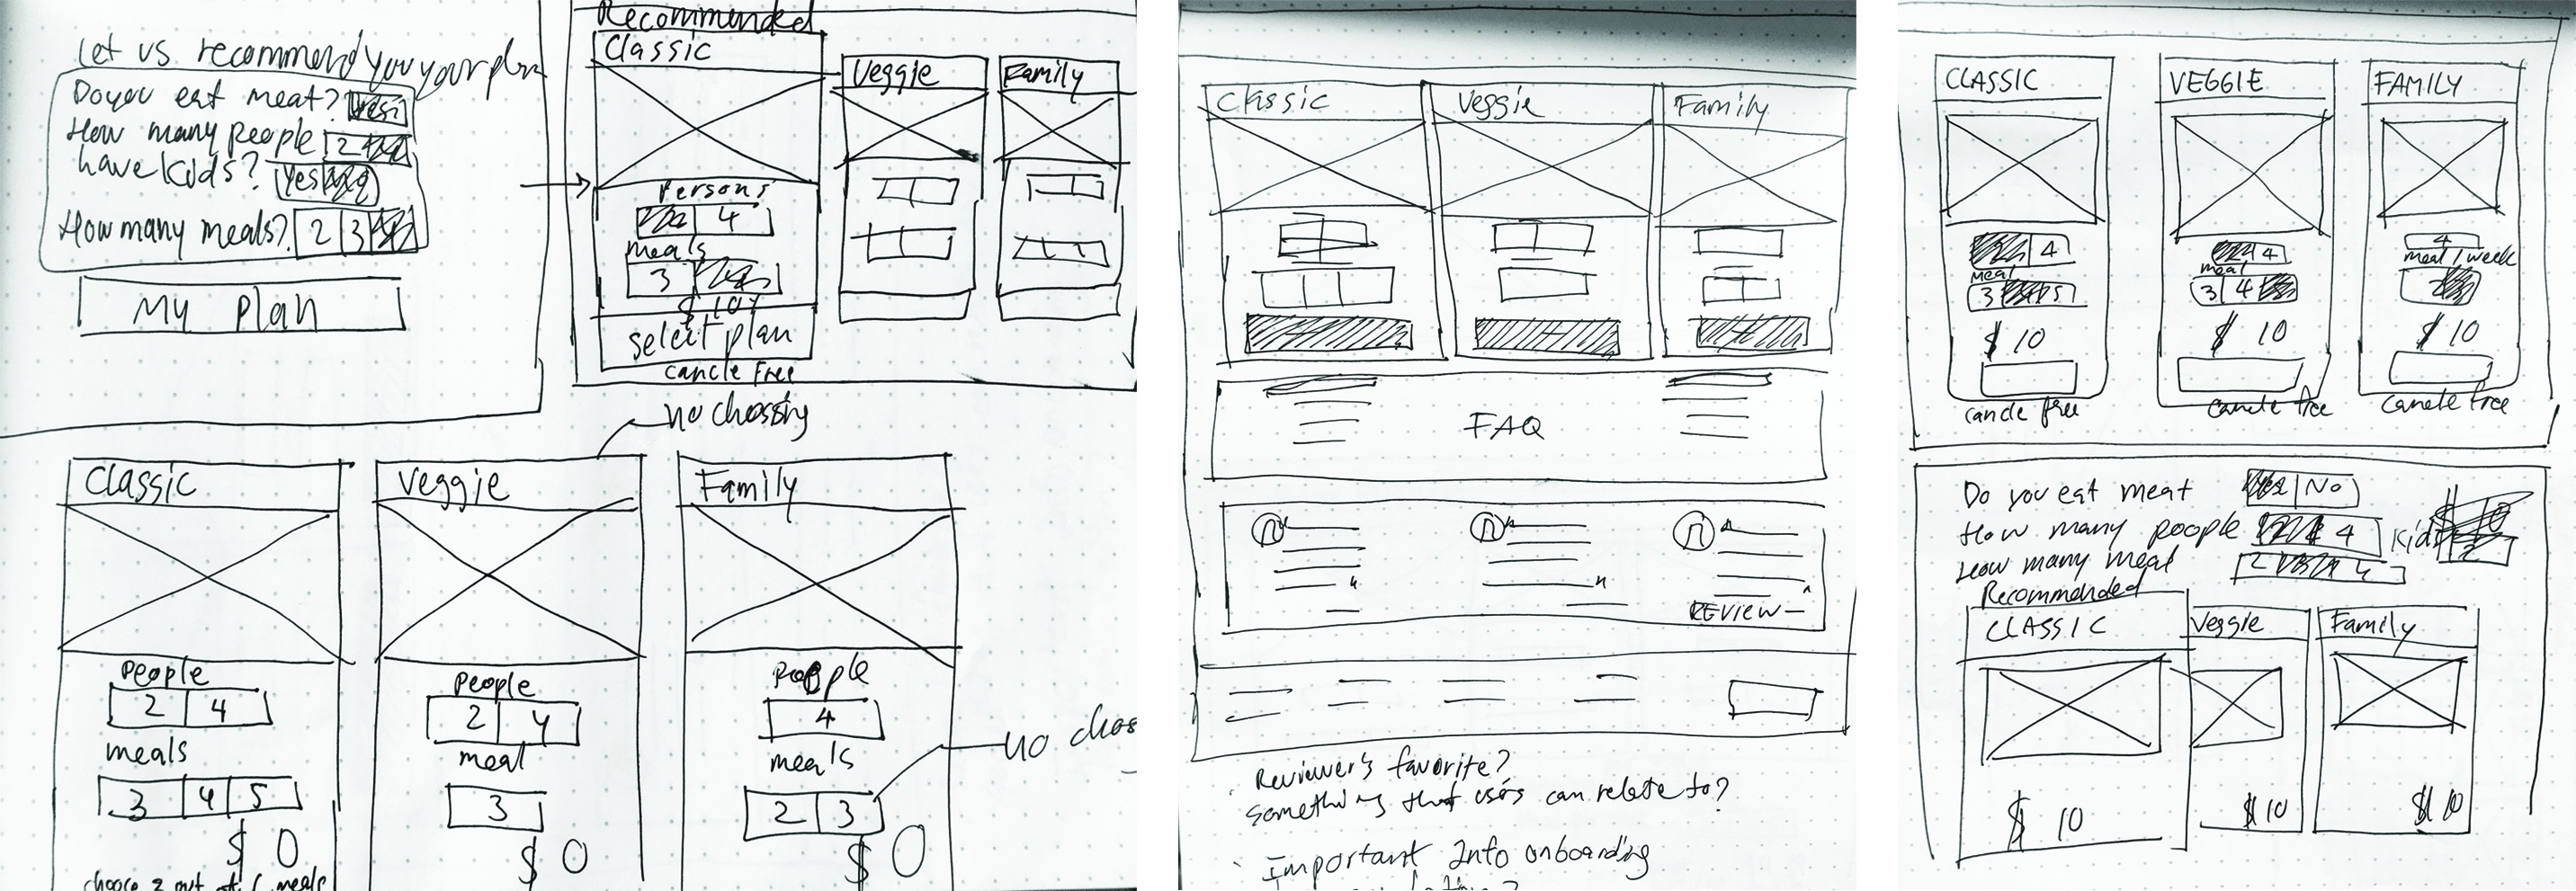 Let us recommend you your plan
Do you eat meat? Yes
How many people 2
have kids? Yes
How many meals? 2 3
My plan
Recommended
Classic
Persons
4
meals
3
$ 10
select plan
cancle Free
Veggie
Family
no chossing
Classic
People
2 4
meals
3 4 5
$ 0
choose 2 out of 6 meals
Veggie
People
2 4
meal
3
$ 0
Family
People
4
meals
2 3
$ 0
no choss
Classic
Veggie
Family
FAQ
REVIEW
Reviewer's favorite?
something that users can relate to?
Important Info onboarding
CLASSIC
4
meal
3 5
$ 10
cancle free
VEGGIE
4
meal
3 4
$ 10
cancle free
FAMILY
4
meal / week
$ 10
cancle free
Do you eat meat No
How many people 4 Kid
How many meal 2
Recommended
CLASSIC
$ 10
Veggie
$ 10
Family
$ 10